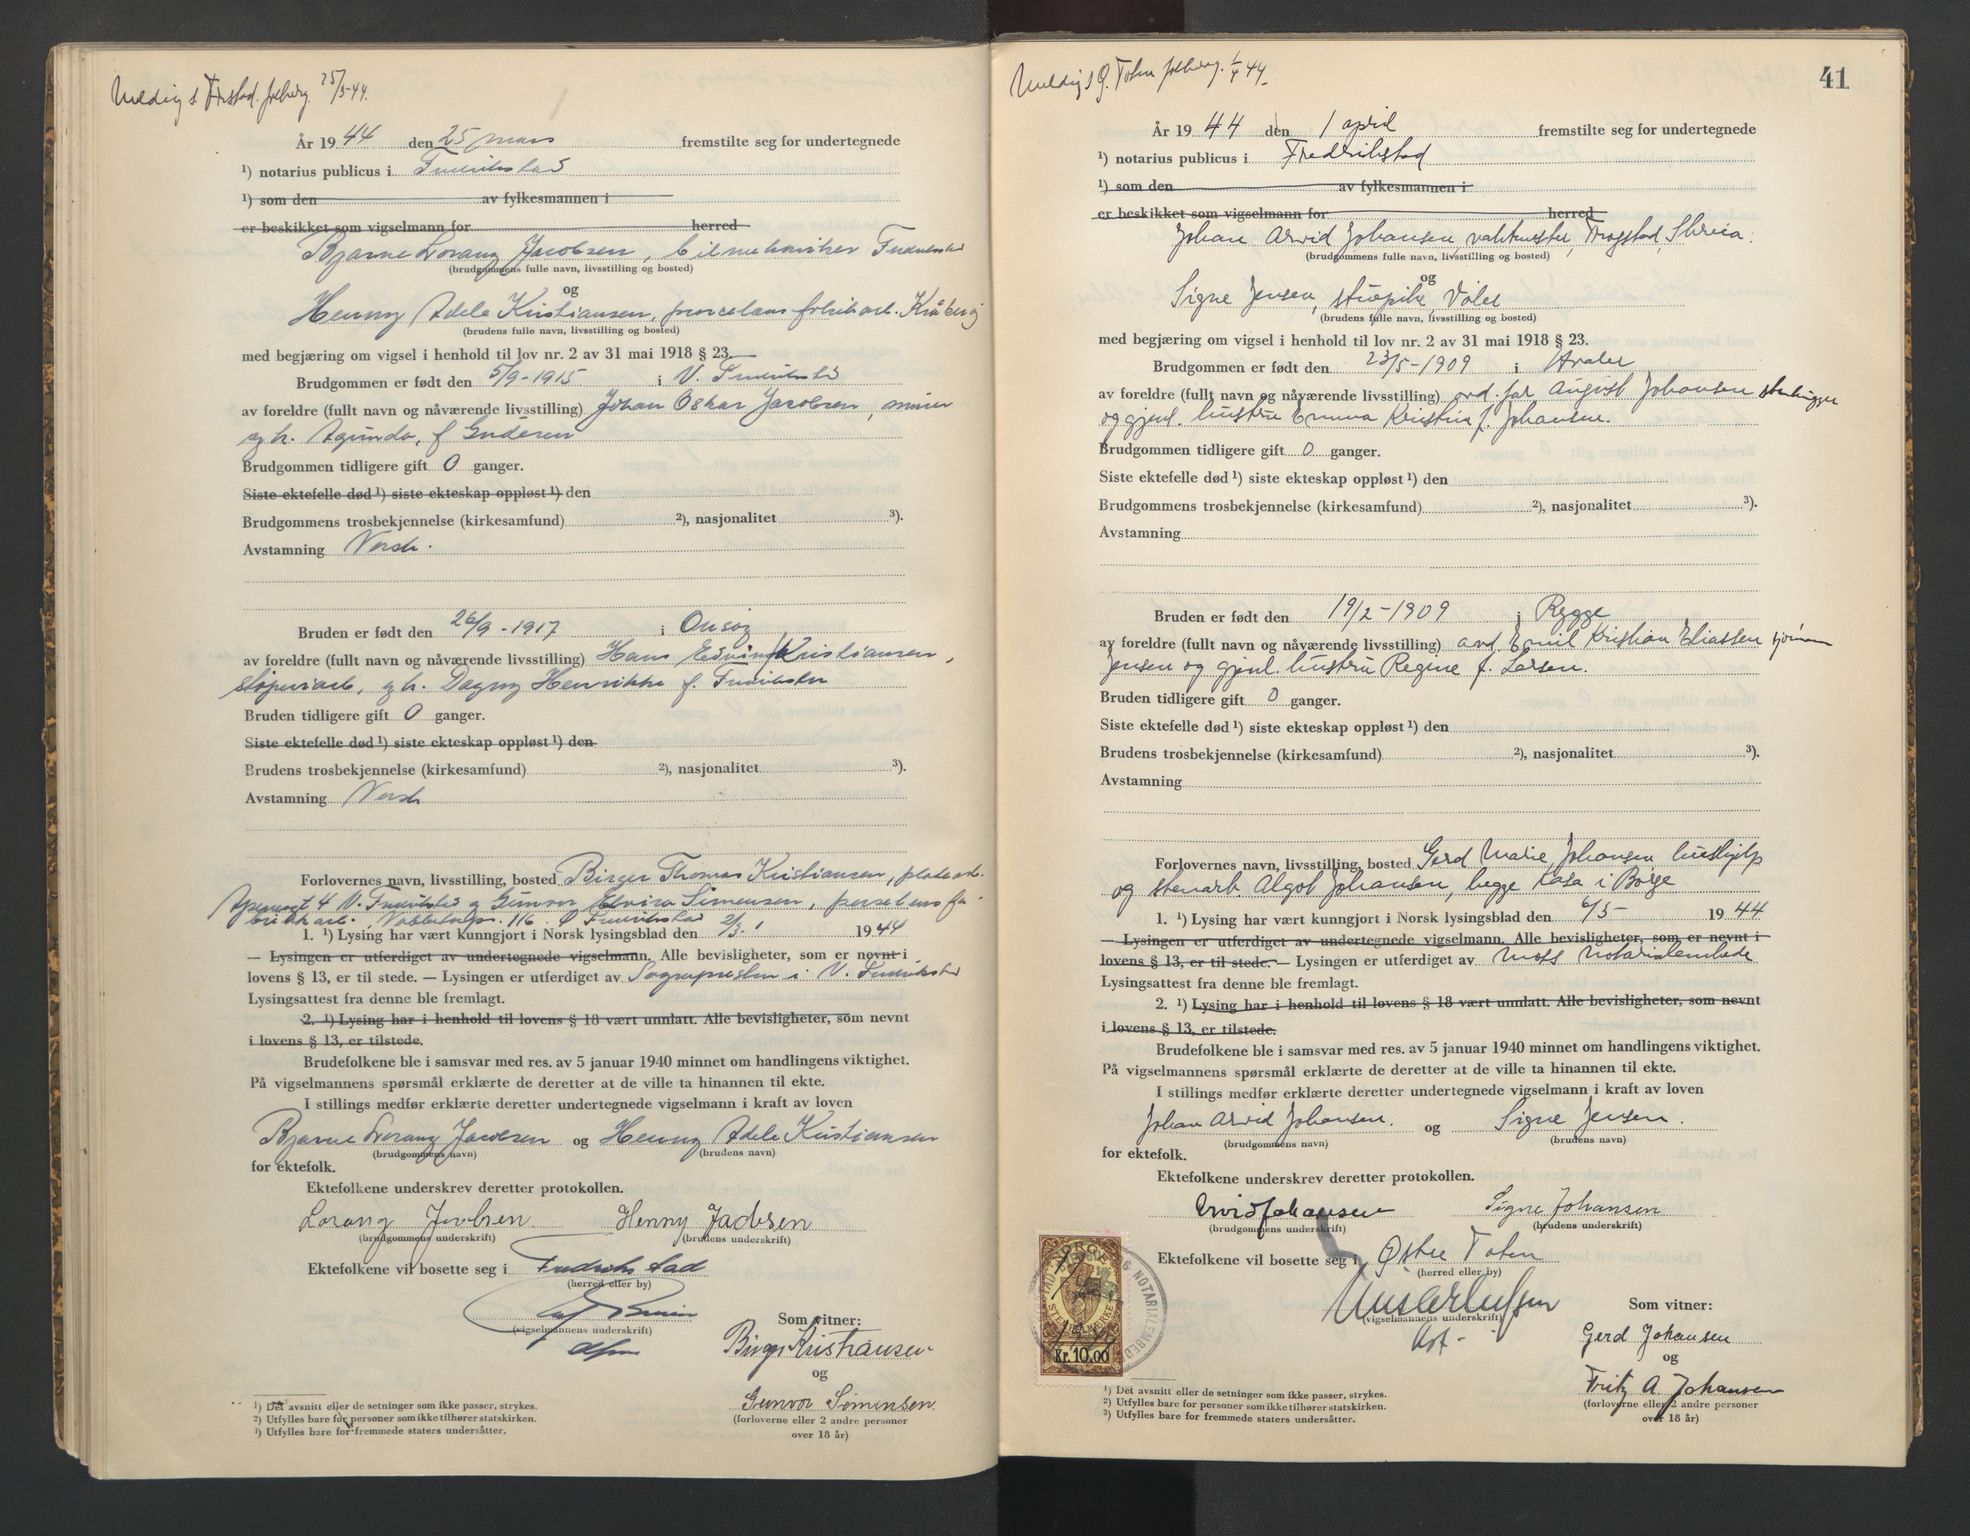 25/3-44.
År 1944 den 25 mars fremstilte seg for undertegnede
¹) notarius publicus i Fredrikstad
¹) som den av fylkesmannen i
er beskikket som vigselmann for herred
Bjarne Lorang Jacobsen, bilmekaniker Fredrikstad
(brudgommens fulle navn, livsstilling og bosted)
og
Henny Adele Kristiansen, porcelansfabrikarb. Kråkerøy
(brudens fulle navn, livsstilling og bosted)
med begjæring om vigsel i henhold til lov nr. 2 av 31 mai 1918 § 23.
Brudgommen er født den 5/9-1915 i V. Fredrikstad
av foreldre (fullt navn og nåværende livsstilling) Johan Oskar Jacobsen, murer
og h. Agunda, f
Brudgommen tidligere gift 0 ganger.
Siste ektefelle død ¹) siste ekteskap oppløst ¹) den
Brudgommens trosbekjennelse (kirkesamfund) ²), nasjonalitet ³).
Avstamning Norsk.
Bruden er født den 26/9-1917 i Onsøy
av foreldre (fullt navn og nåværende livsstilling) Hans Edvin Kristiansen,
støperiarb, og h. Dagny Henrikke f. Fredriksen
Bruden tidligere gift 0 ganger.
Siste ektefelle død ¹) siste ekteskap oppløst ¹) den
Brudens trosbekjennelse (kirkesamfund) ²), nasjonalitet ³).
Avstamning Norsk
Forlovernes navn, livsstilling, bosted Birger Thomas Kristiansen, platearb.
4 V. Fredrikstad og Gunvor Elvira Simensen, porselensfa-
brikkarb. 116. Ø Fredrikstad
1. ¹) Lysing har vært kunngjort i Norsk lysingsblad den 2/3. 1944
— Lysingen er utferdiget av undertegnede vigselmann. Alle bevisligheter, som er nevnt i
lovens § 13, er til stede. — Lysingen er utferdiget av Sognepresten i V. Fredrikstad
Lysingsattest fra denne ble fremlagt.
2. ¹) Lysing har i henhold til lovens § 18 vært unnlatt. Alle bevisligheter, som nevnt
i lovens § 13, er tilstede.
Brudefolkene ble i samsvar med res. av 5 januar 1940 minnet om handlingens viktighet.
På vigselmannens spørsmål erklærte de deretter at de ville ta hinannen til ekte.
I stillings medfør erklærte deretter undertegnede vigselmann i kraft av loven
Bjarne Lorang Jacobsen og Henny Adele Kristiansen
(brudgommens navn) (brudens navn)
for ektefolk.
Ektefolkene underskrev deretter protokollen.
Lorang Jacobsen Henny Jacobsen
(brudgommens underskrift) (brudens underskrift)
Ektefolkene vil bosette seg i Fredrikstad
(herred eller by)
(vigselmannens underskrift)
Som vitner:
Birger Kristiansen
og
Gunvor Simensen
(forloverne eller 2 andre personer
over 18 år)
¹) Det avsnitt eller de setninger som ikke passer, strykes.
²) Utfylles bare for personer som ikke tilhører statskirken.
³) Utfylles bare for fremmede staters undersåtter.
Ø. Toten 1/4 44
41
År 1944 den 1 april fremstilte seg for undertegnede
¹) notarius publicus i Fredrikstad
¹) som den av fylkesmannen i
er beskikket som vigselmann for herred
Johan Arvid Johansen vaktmester, Skreia.
(brudgommens fulle navn, livsstilling og bosted)
og
Signe Jensen, stuepike, Våler
(brudens fulle navn, livsstilling og bosted)
med begjæring om vigsel i henhold til lov nr. 2 av 31 mai 1918 § 23.
Brudgommen er født den 23/5-1909 i Hvaler
av foreldre (fullt navn og nåværende livsstilling) avd. far August Johansen stenhugger
og gjenl. hustru Emma Kristine f. Johansen.
Brudgommen tidligere gift 0 ganger.
Siste ektefelle død ¹) siste ekteskap oppløst ¹) den
Brudgommens trosbekjennelse (kirkesamfund) ²), nasjonalitet ³).
Avstamning
Bruden er født den 19/2-1909 i Rygge
av foreldre (fullt navn og nåværende livsstilling) avd Emil Kristian Eliassen sjømann
Jensen og gjenl. hustru Regine f. Larsen.
Bruden tidligere gift 0 ganger.
Siste ektefelle død ¹) siste ekteskap oppløst ¹) den
Brudens trosbekjennelse (kirkesamfund) ²), nasjonalitet ³).
Avstamning
Forlovernes navn, livsstilling, bosted Gerd Marie Johansen, hushjelp
og stenarb. Algot Johansen, begge Kasa i Borge
1. ¹) Lysing har vært kunngjort i Norsk lysingsblad den 6/3- 1944
— Lysingen er utferdiget av undertegnede vigselmann. Alle bevisligheter, som er nevnt i
lovens § 13, er til stede. — Lysingen er utferdiget av Moss Notarialembede
Lysingsattest fra denne ble fremlagt.
2. ¹) Lysing har i henhold til lovens § 18 vært unnlatt. Alle bevisligheter, som nevnt
i lovens § 13, er tilstede.
Brudefolkene ble i samsvar med res. av 5 januar 1940 minnet om handlingens viktighet.
På vigselmannens spørsmål erklærte de deretter at de ville ta hinannen til ekte.
I stillings medfør erklærte deretter undertegnede vigselmann i kraft av loven
Johan Arvid Johansen. og Signe Jensen.
(brudgommens navn) (brudens navn)
for ektefolk.
Ektefolkene underskrev deretter protokollen.
Arvid Johansen Signe Johansen
(brudgommens underskrift) (brudens underskrift)
Ektefolkene vil bosette seg i Østre Toten
(herred eller by)
(vigselmannens underskrift)
Som vitner:
Gerd Johansen
og
Fritz A. Johansen
(forloverne eller 2 andre personer
over 18 år)
NORGE
STEMPELMERKE
Kr. 10.00
NOTARIALEMBED
¹) Det avsnitt eller de setninger som ikke passer, strykes.
²) Utfylles bare for personer som ikke tilhører statskirken.
³) Utfylles bare for fremmede staters undersåtter.